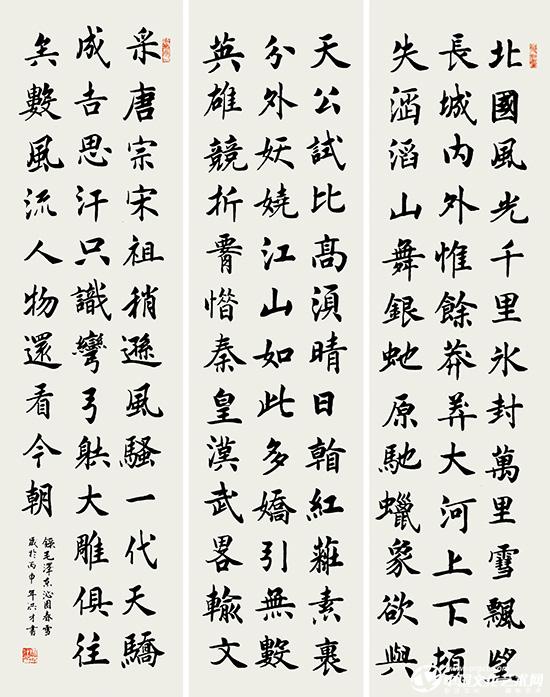 北國風光千里氷封萬里雪飄望
長城内外惟餘莽莽大河上下頓
失滔滔山舞銀虵原馳蠟象欲與
天公試比髙須晴日看紅裝素裹
分外妖嬈江山如此多嬌引無數
英雄競折腰惜秦皇漢武畧輸文
采唐宗宋祖稍遜風騷一代天驕
成吉思汗只識彎弓射大雕俱往
矣數風流人物還看今朝
錄毛澤東沁園春雪
歲於丙申年洪才書